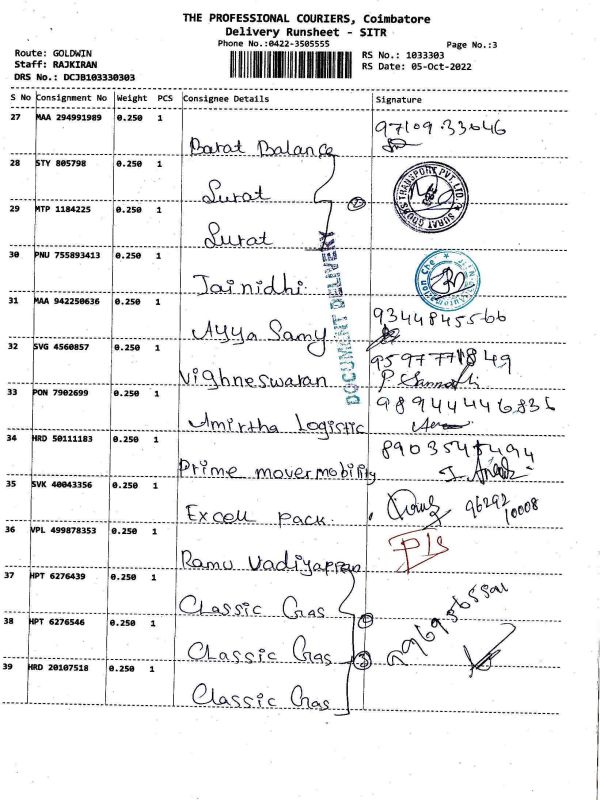 THE PROFESSIONAL COURIERS, Coimbatore
Delivery Runsheet - SITR
Phone No.:0422-3505555
Page No.:3
Route: GOLDWIN
Staff: RAJKIRAN
DRS No.: DCJB103330303
RS No.: 1033303
RS Date: 05-Oct-2022
S No Consignment No Weight PCS Consignee Details Signature
27 MAA 294991989 0.250 1
Barat Balance
97109 33646
28 STY 805798 0.250 1
Surat
SURAT GOODS TRANSPORT PVT. LTD.
29 MTP 1184225 0.250 1
2
Surat
30 PNU 755893413 0.250 1
Jainidhi
DOCUMENT DELIVERY
31 MAA 942250636 0.250 1
Ayya Samy
9344845566
32 SVG 4560857 0.250 1
Vighneswaran
9597771849
33 PON 7902699 0.250 1
Amirtha Logistic
34 HRD 50111183 0.250 1
Prime movermobility
35 SVK 40043356 0.250 1
Excell pack.
96292
10008
36 VPL 499878353 0.250 1
Ramu Vadiyappan
37 HPT 6276439 0.250 1
Classic Gas
38 HPT 6276546 0.250 1
Classic Gas
3
39 HRD 20107518 0.250 1
Classic Gas